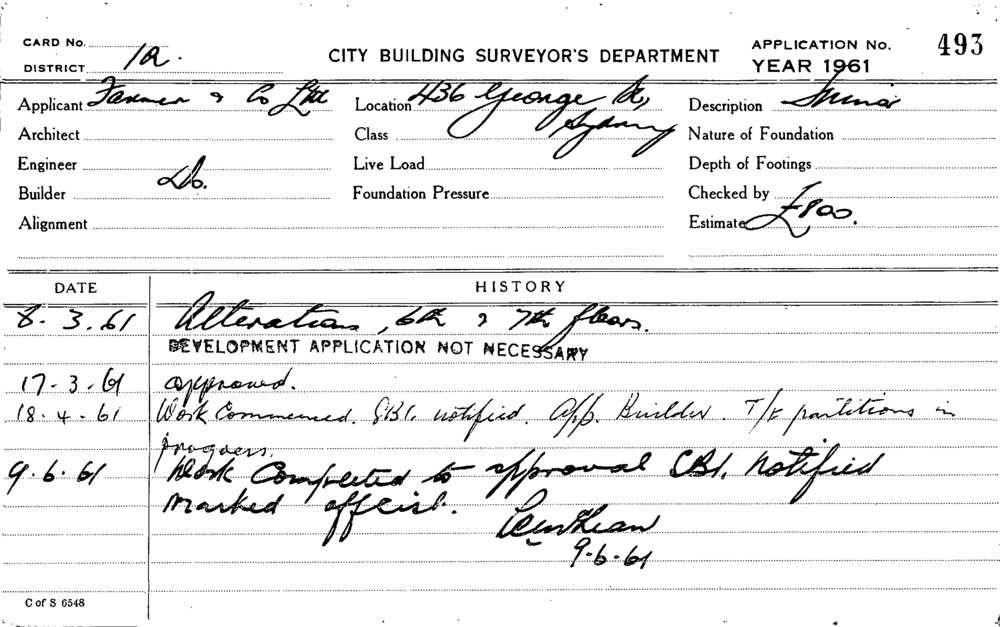 CARD No.
DISTRICT 1A.
CITY BUILDING SURVEYOR'S DEPARTMENT
APPLICATION No. 493
YEAR 1961
Applicant Farmer & Co Ltd
Location 436 George St, Sydney
Description Minor
Architect
Class
Nature of Foundation
Engineer
Live Load
Depth of Footings
Builder Do.
Foundation Pressure
Checked by
Alignment
Estimate £800.
DATE HISTORY
8.3.61 Alterations, 6th & 7th floors.
DEVELOPMENT APPLICATION NOT NECESSARY
17-3-61 approved.
18.4.61 Work Commenced. SBI. notified. App. Builder. T/F partitions in
progress.
9.6.61 Work Completed to approval SBI. Notified
Marked off list.
9.6.61
C of S 6548